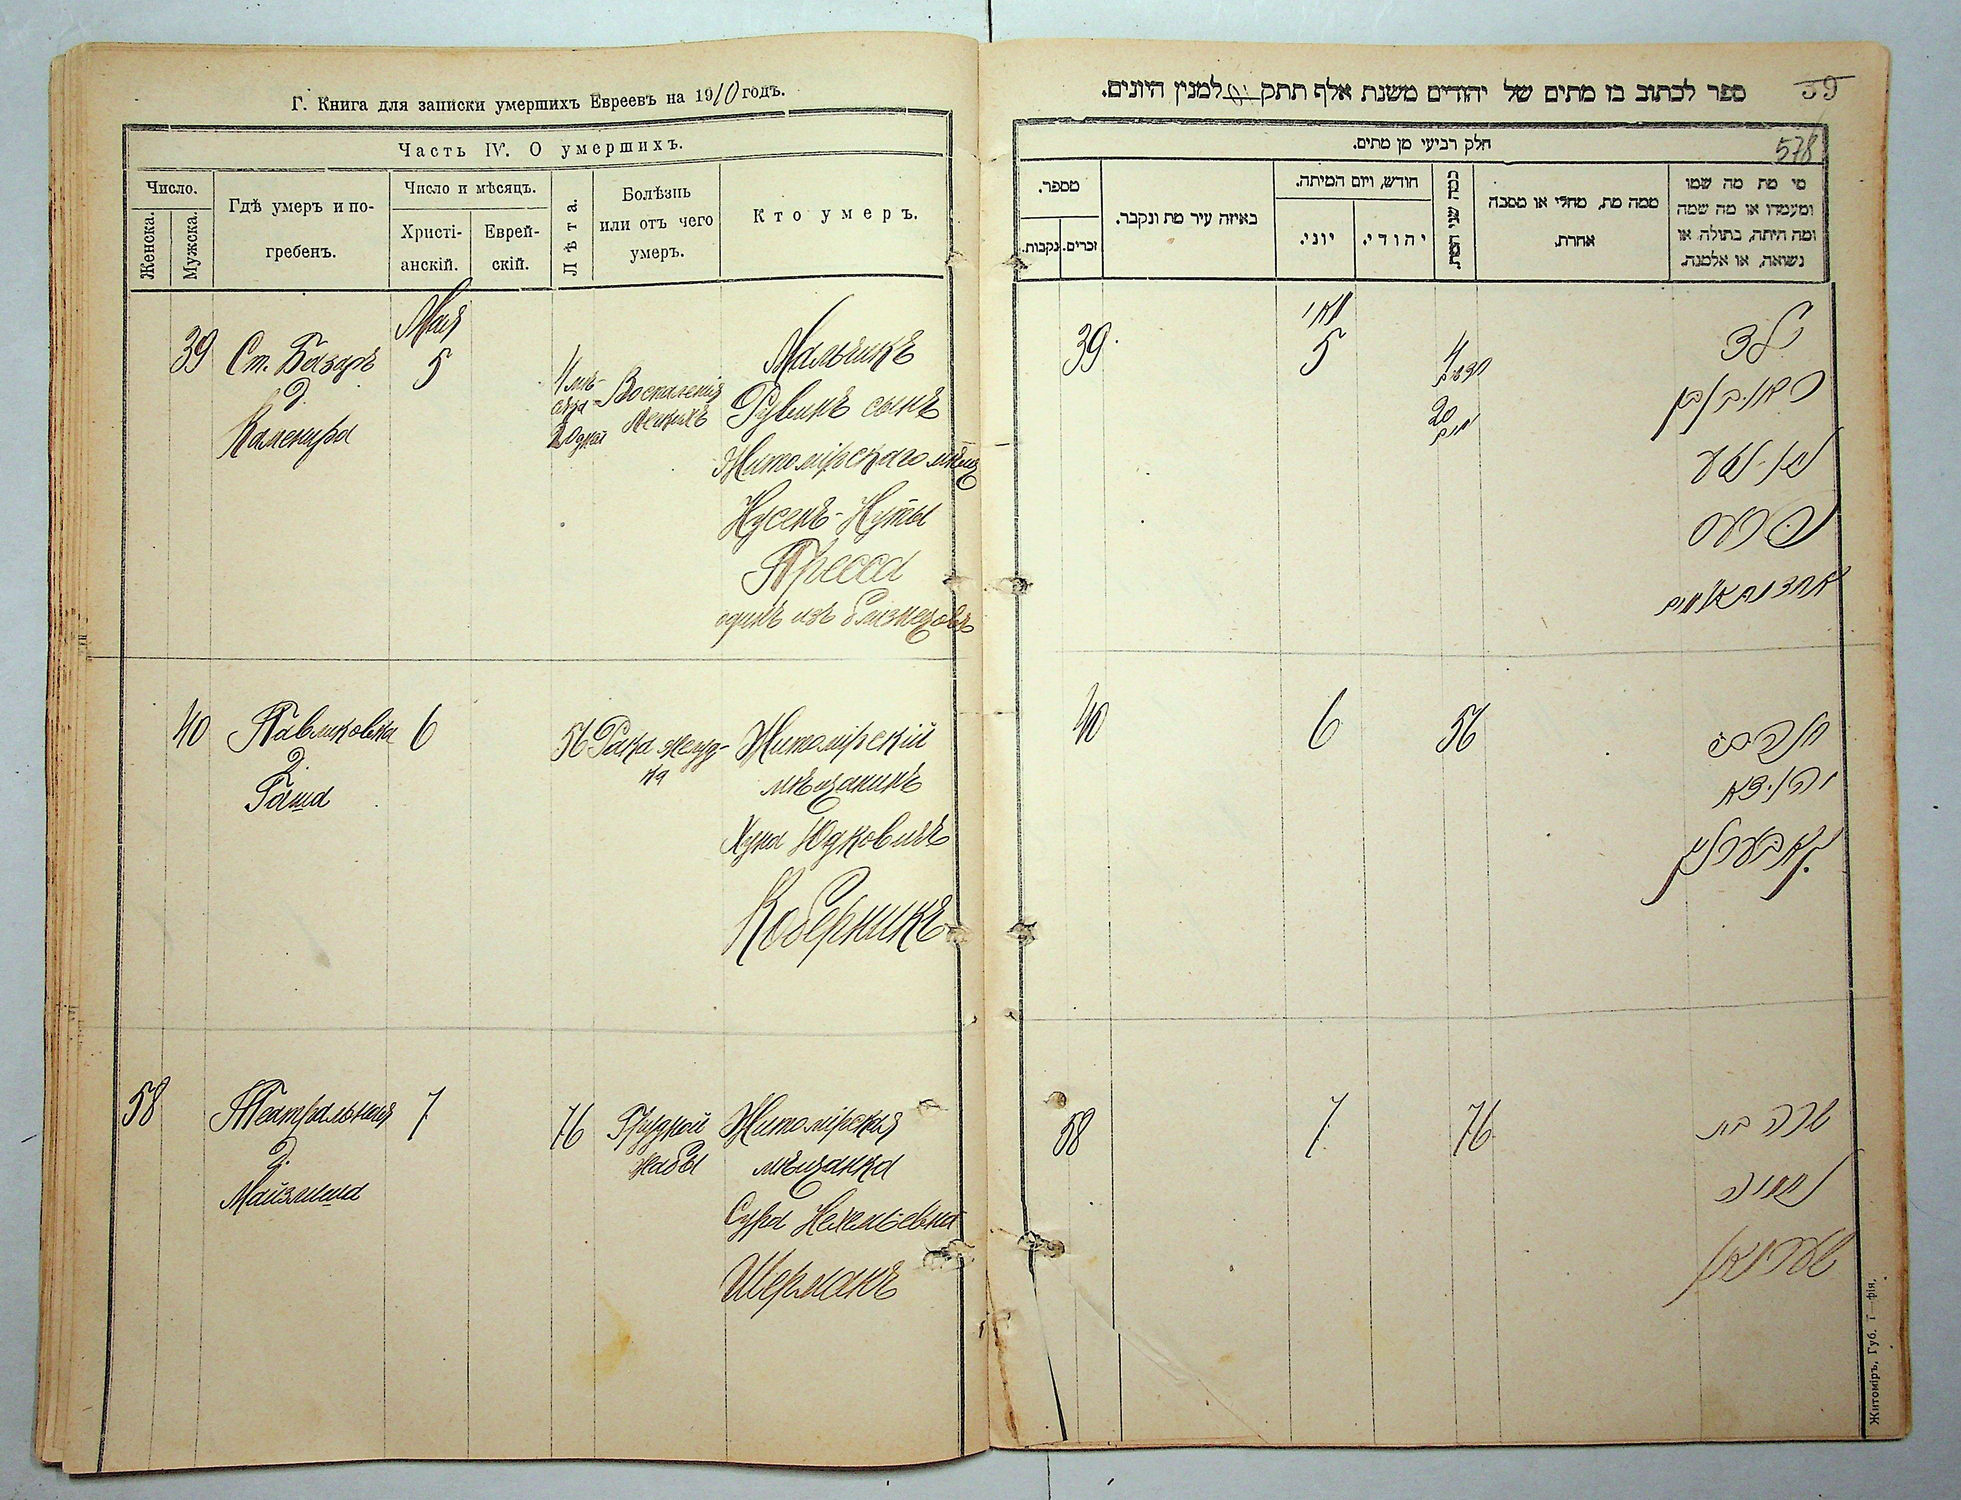 Г. Книга для записки умершихъ Евреевъ на 1910 годъ.
Часть IV. О умершихъ.
Число.
Женска.
Мужска.
Гдѣ умеръ и по-
гребенъ.
Число и мѣсяцъ.
Христі-
анскій.
Еврей-
скій.
Лѣта.
Болѣзнь
или отъ чего
умеръ.
Кто умеръ.
39
Ст. Базаръ
д.
Мая
5
4 мѣ-
сяца
20 дней
Воспаленія
легкихъ
Мальчикъ
Рувинъ сынъ
Житомірскаго мѣщ
Нусенъ-Нуты
Пресса
одинъ изъ близнецовъ
40
Павликовка
д.
Гаша
6
56
Рака желуд-
ка
Житомірскій
мѣщанинъ
Хуна Юдковичъ
Коберникъ
58
Театральная
д.
Майзлиша
7
76
Грудной
жабы
Житомірская
мѣщанка
Сура Нехемьевна
Шерманъ
ספר לכתוב בו מתים של יהודים משנת אלף תתק למנין היונים.
39
578
חלק רביעי מן מתים.
מי מת מה שמו
ומעמדו או מה שמה
ומה היתה, בתולה או
נשואה, או אלמנה.
ממה מת, מחלי או מסבה
אחרת.
כמה שני המת
חודש, ויום המיתה.
יהודי.
יוני.
באיזה עיר מת ונקבר.
מספר.
זכרים.
נקבות.
39
מאי
5
4
חדשים
20
ימים
ילד
ראובן בן
נטע
פרעס
אחד מתאומים
40
6
56
חנה ב״
יודא
קאבערניק
58
7
76
שרה בת
נחמיה
שערמאן
Житоміръ, Губ. т—фія.